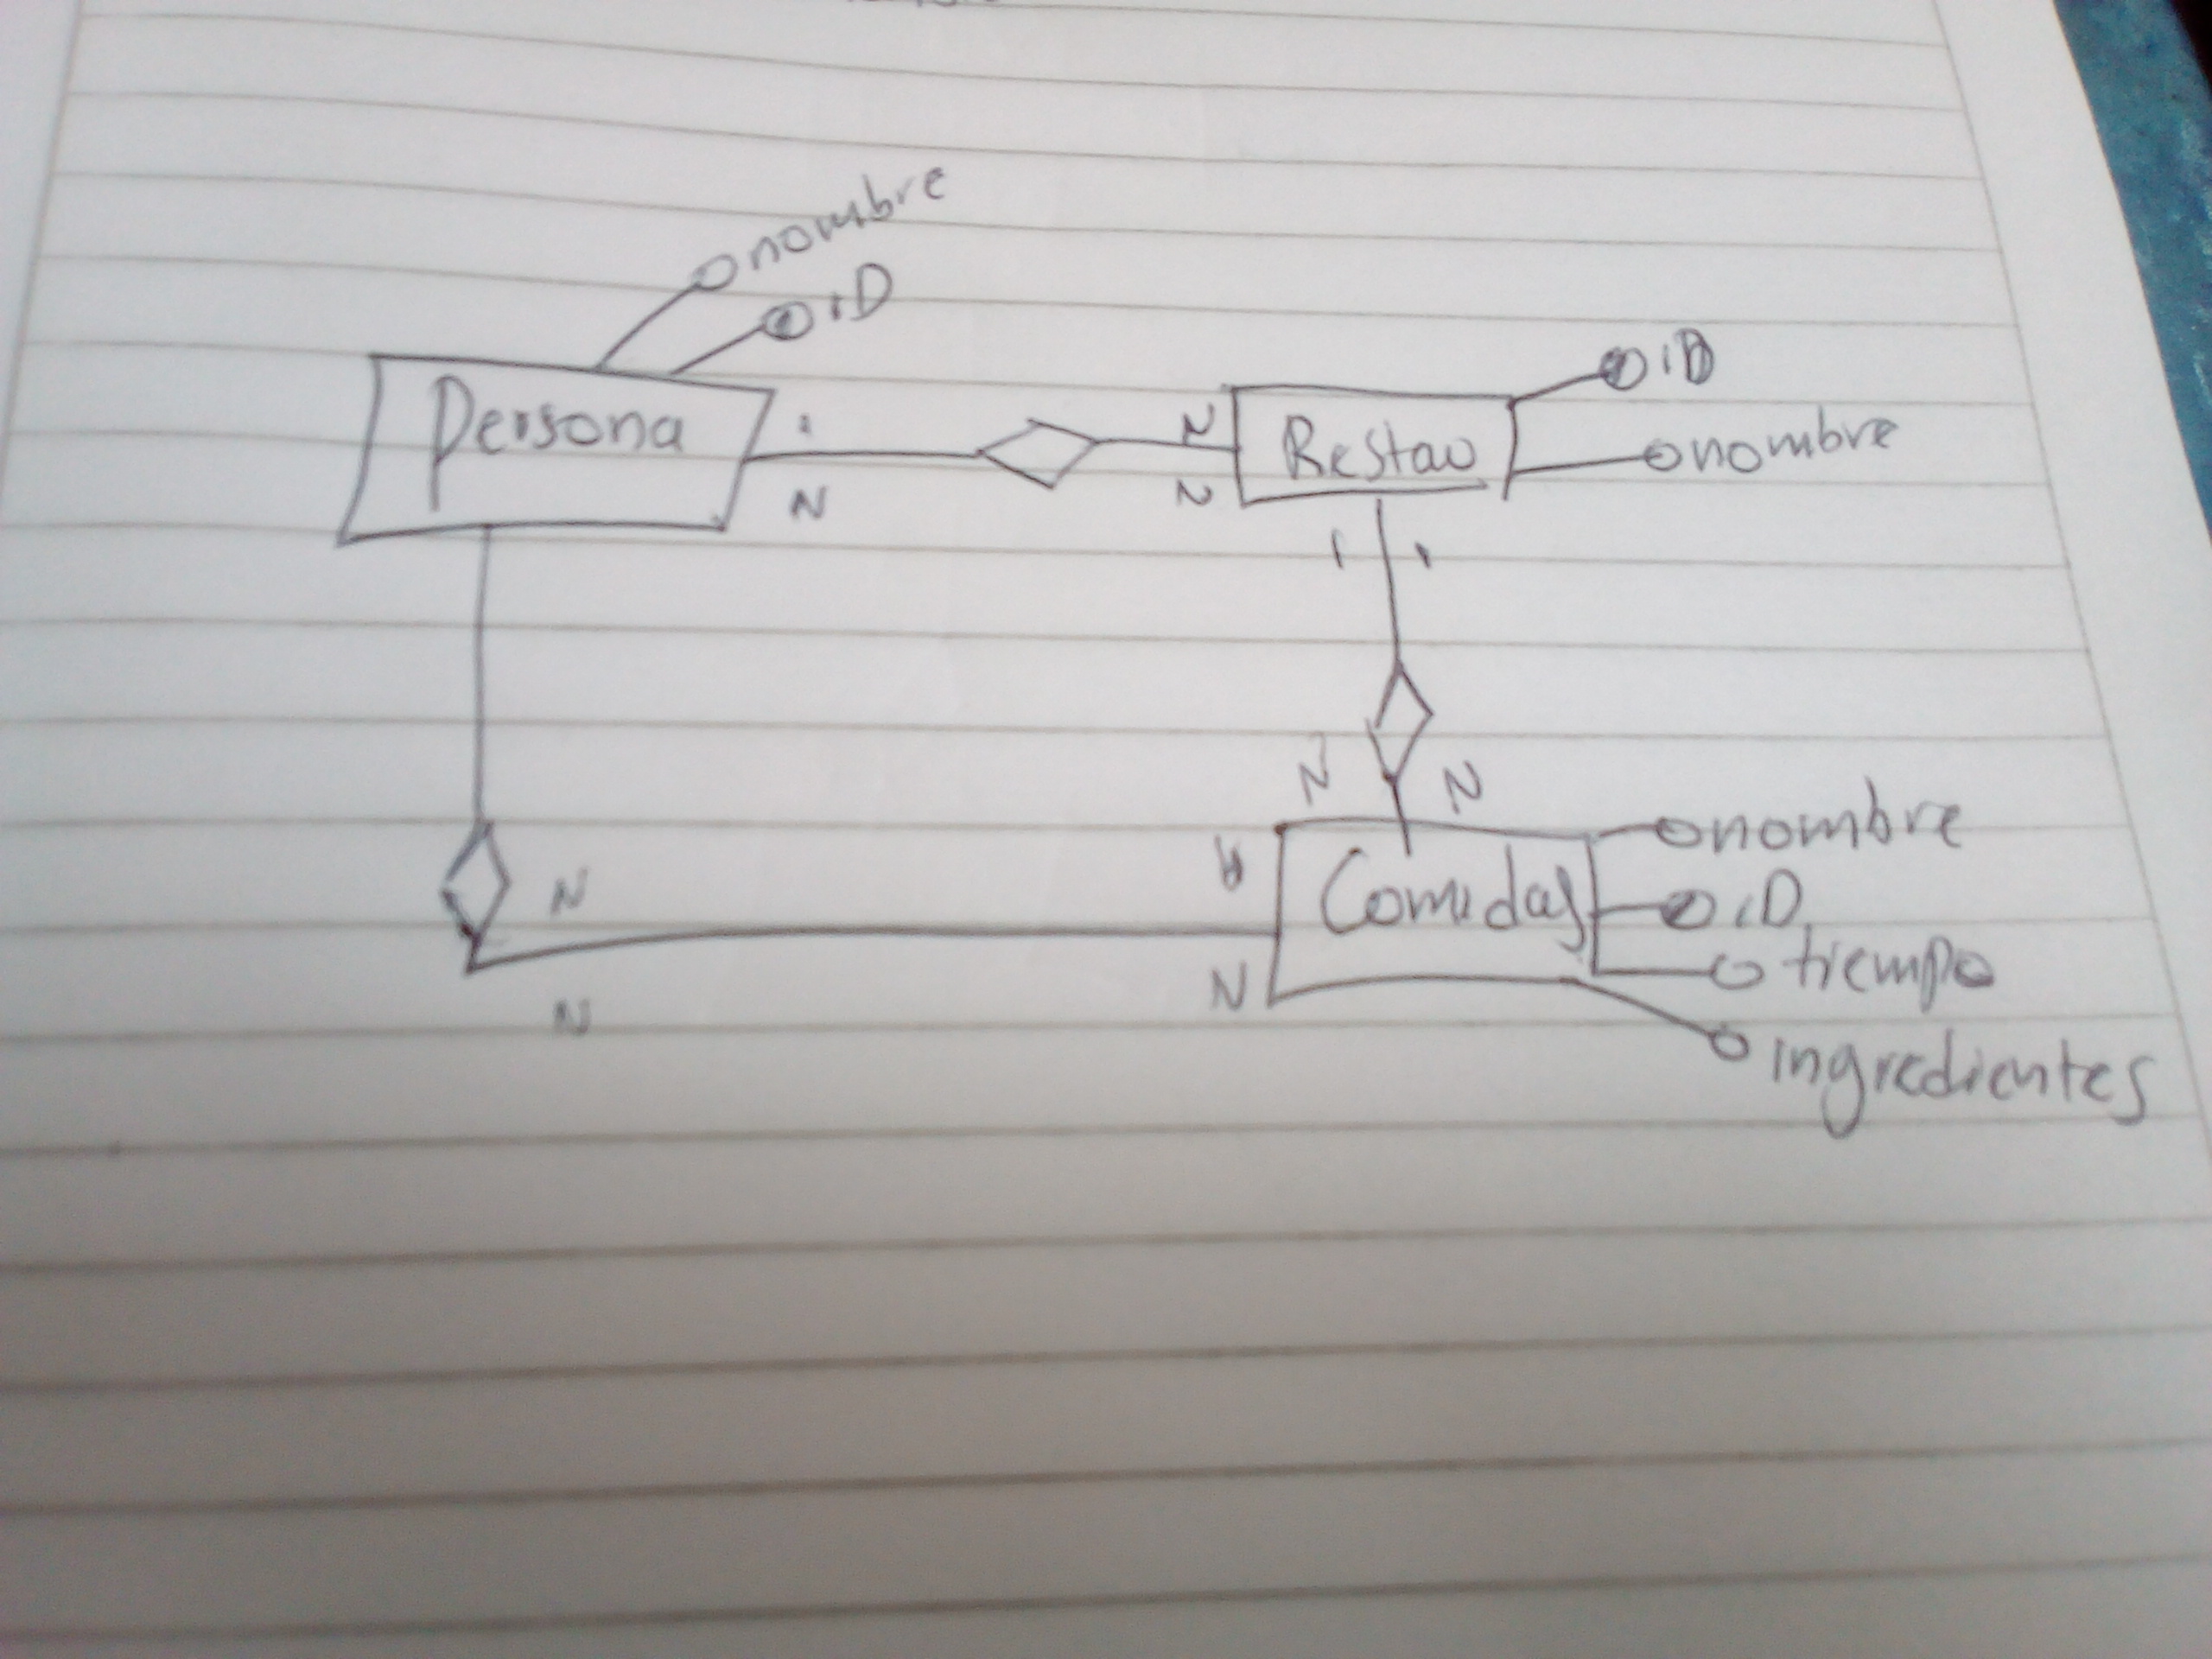 nombre
iD
Persona
1
N
N
N
Restau
iD
nombre
1 1
N N
Comidas
nombre
iD
tiempo
ingredientes
N
N
N